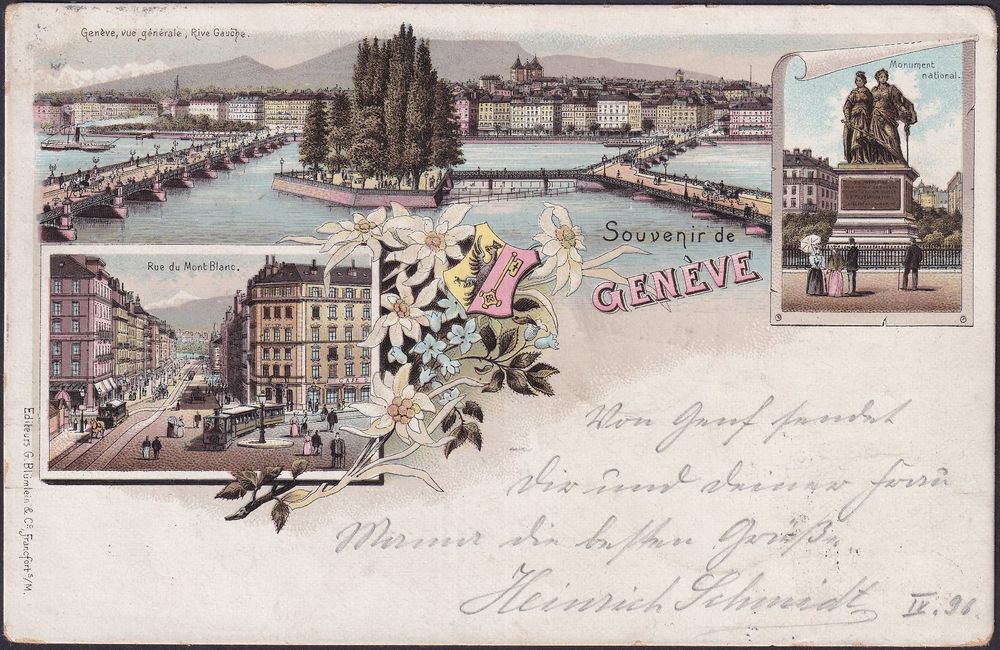 Genève, vue générale, Rive Gauche.
Monument
national.
Souvenir de
GENÈVE
Rue du Mont Blanc.
Editeurs G. Blümlein & Co, Francfort s/M.
Von Genf sendet
Dir und deiner Frau
Mama die besten Grüße.
Heinrich Schmidt
IV. 96